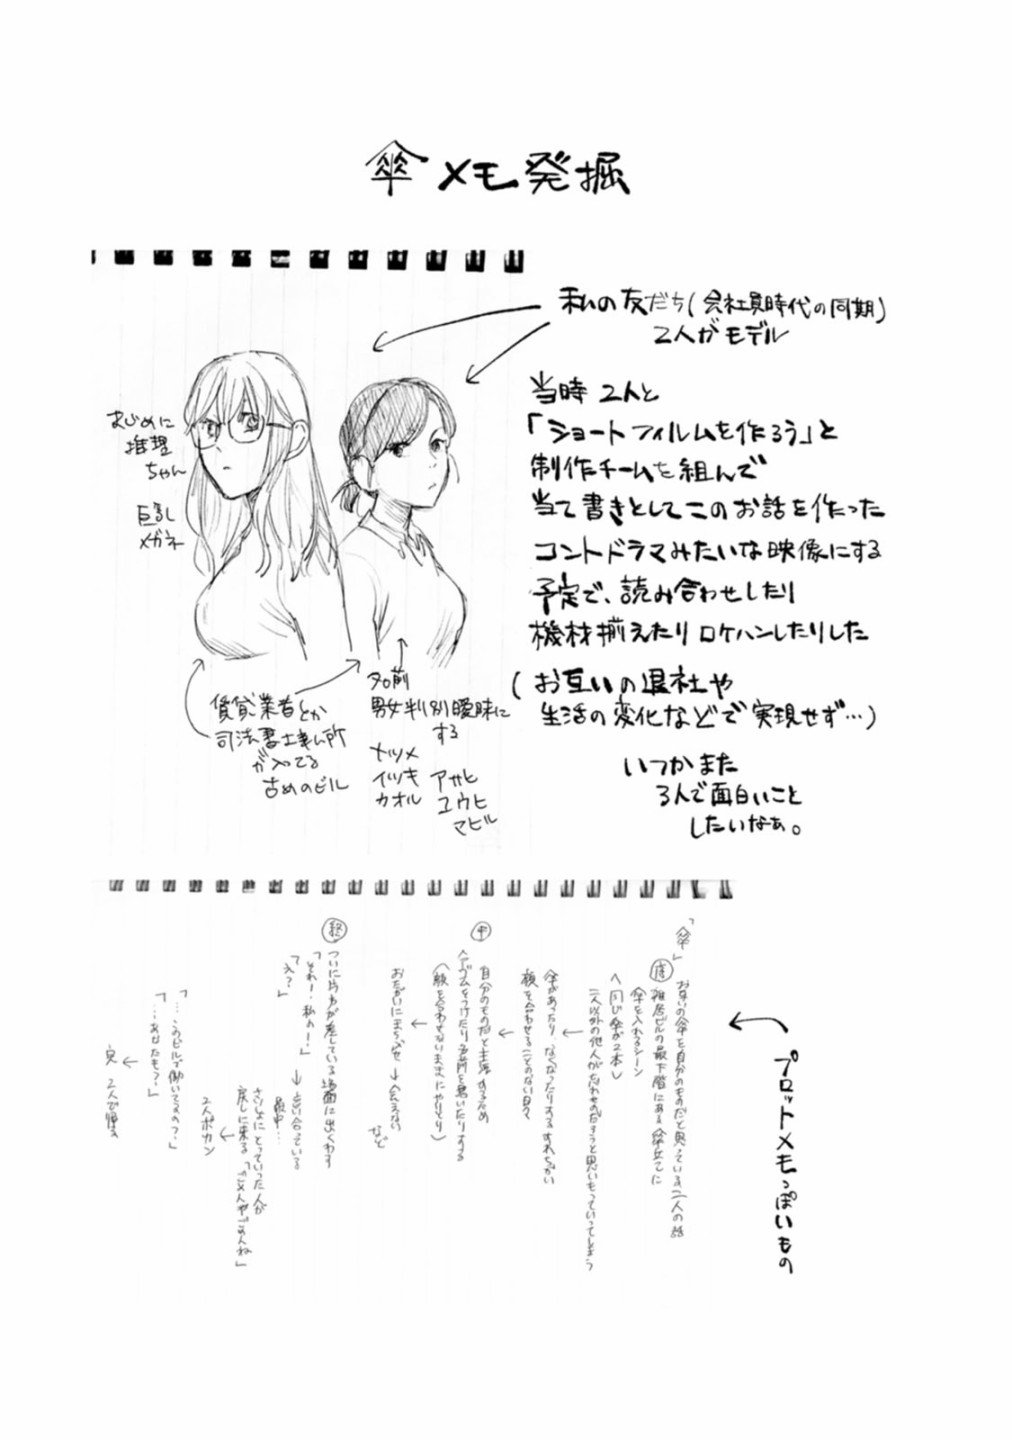 傘メモ発掘
私の友だち(会社員時代の同期)
2人がモデル
当時 2人と
「ショートフィルムを作ろう」と
制作チームを組んで
当て書きとしてこのお話を作った
コントドラマみたいな映像にする
予定で、読み合わせしたり
機材揃えたりロケハンしたりした
(お互いの退社や
生活の変化などで実現せず…)
いつかまた
3人で面白いこと
したいなぁ。
まじめに
推理
ちゃん
巨乳
メガネ
賃貸業者とか
司法書士事ム所
が入ってる
古めのビル
名前
男女判別曖昧に
する
ナツメ
イツキ
カオル
アサヒ
ユウヒ
マヒル
プロットメモっぽいもの
「傘」
お互いの傘を自分のものだと思っている二人の話
雑居ビルの最下階にある傘立てに
傘を入れるシーン
〈同じ傘が2本〉
二人以外の他人がだれかのだろうと思いもっていってしまう
傘があったり、なくなったりするすれちがい
顔を合わせることのない日々
中
自分のものだと主張するため
〈顔を合わせないままにやりとり〉
おたがいにまちぶせ→会えない
など
終
ついに片方が差している場面に出くわす
「それー、私のー!」
「え?」
→言い合っている
最中…
さいしょにとっていった人が
戻しに来る「ごめんやでごめんね」
2人ポカン
「…このビルで働いてるの?」
「…あなたも?」
2人で帰る